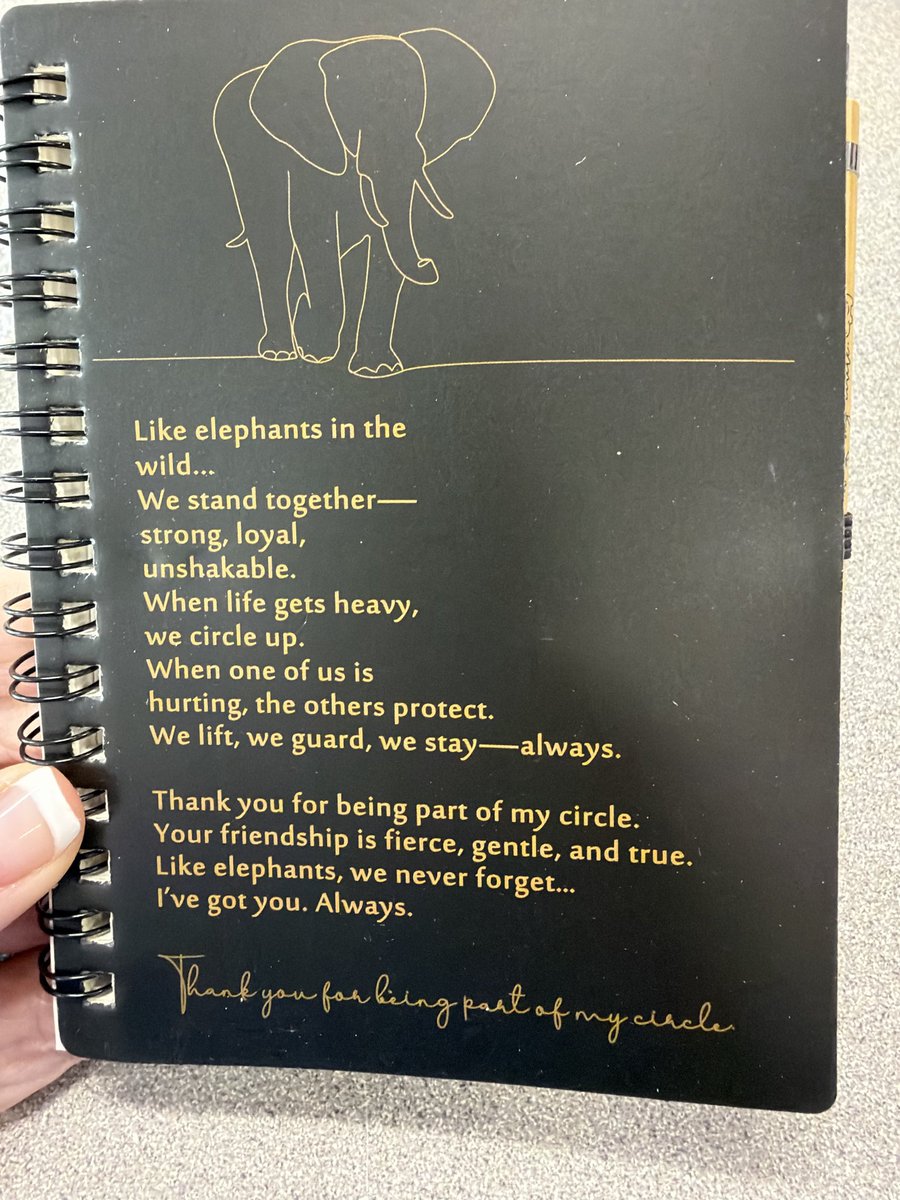 Like elephants in the
wild...
We stand together—
strong, loyal,
unshakable.
When life gets heavy,
we circle up.
When one of us is
hurting, the others protect.
We lift, we guard, we stay—always.
Thank you for being part of my circle.
Your friendship is fierce, gentle, and true.
Like elephants, we never forget...
I've got you. Always.
Thank you for being part of my circle.